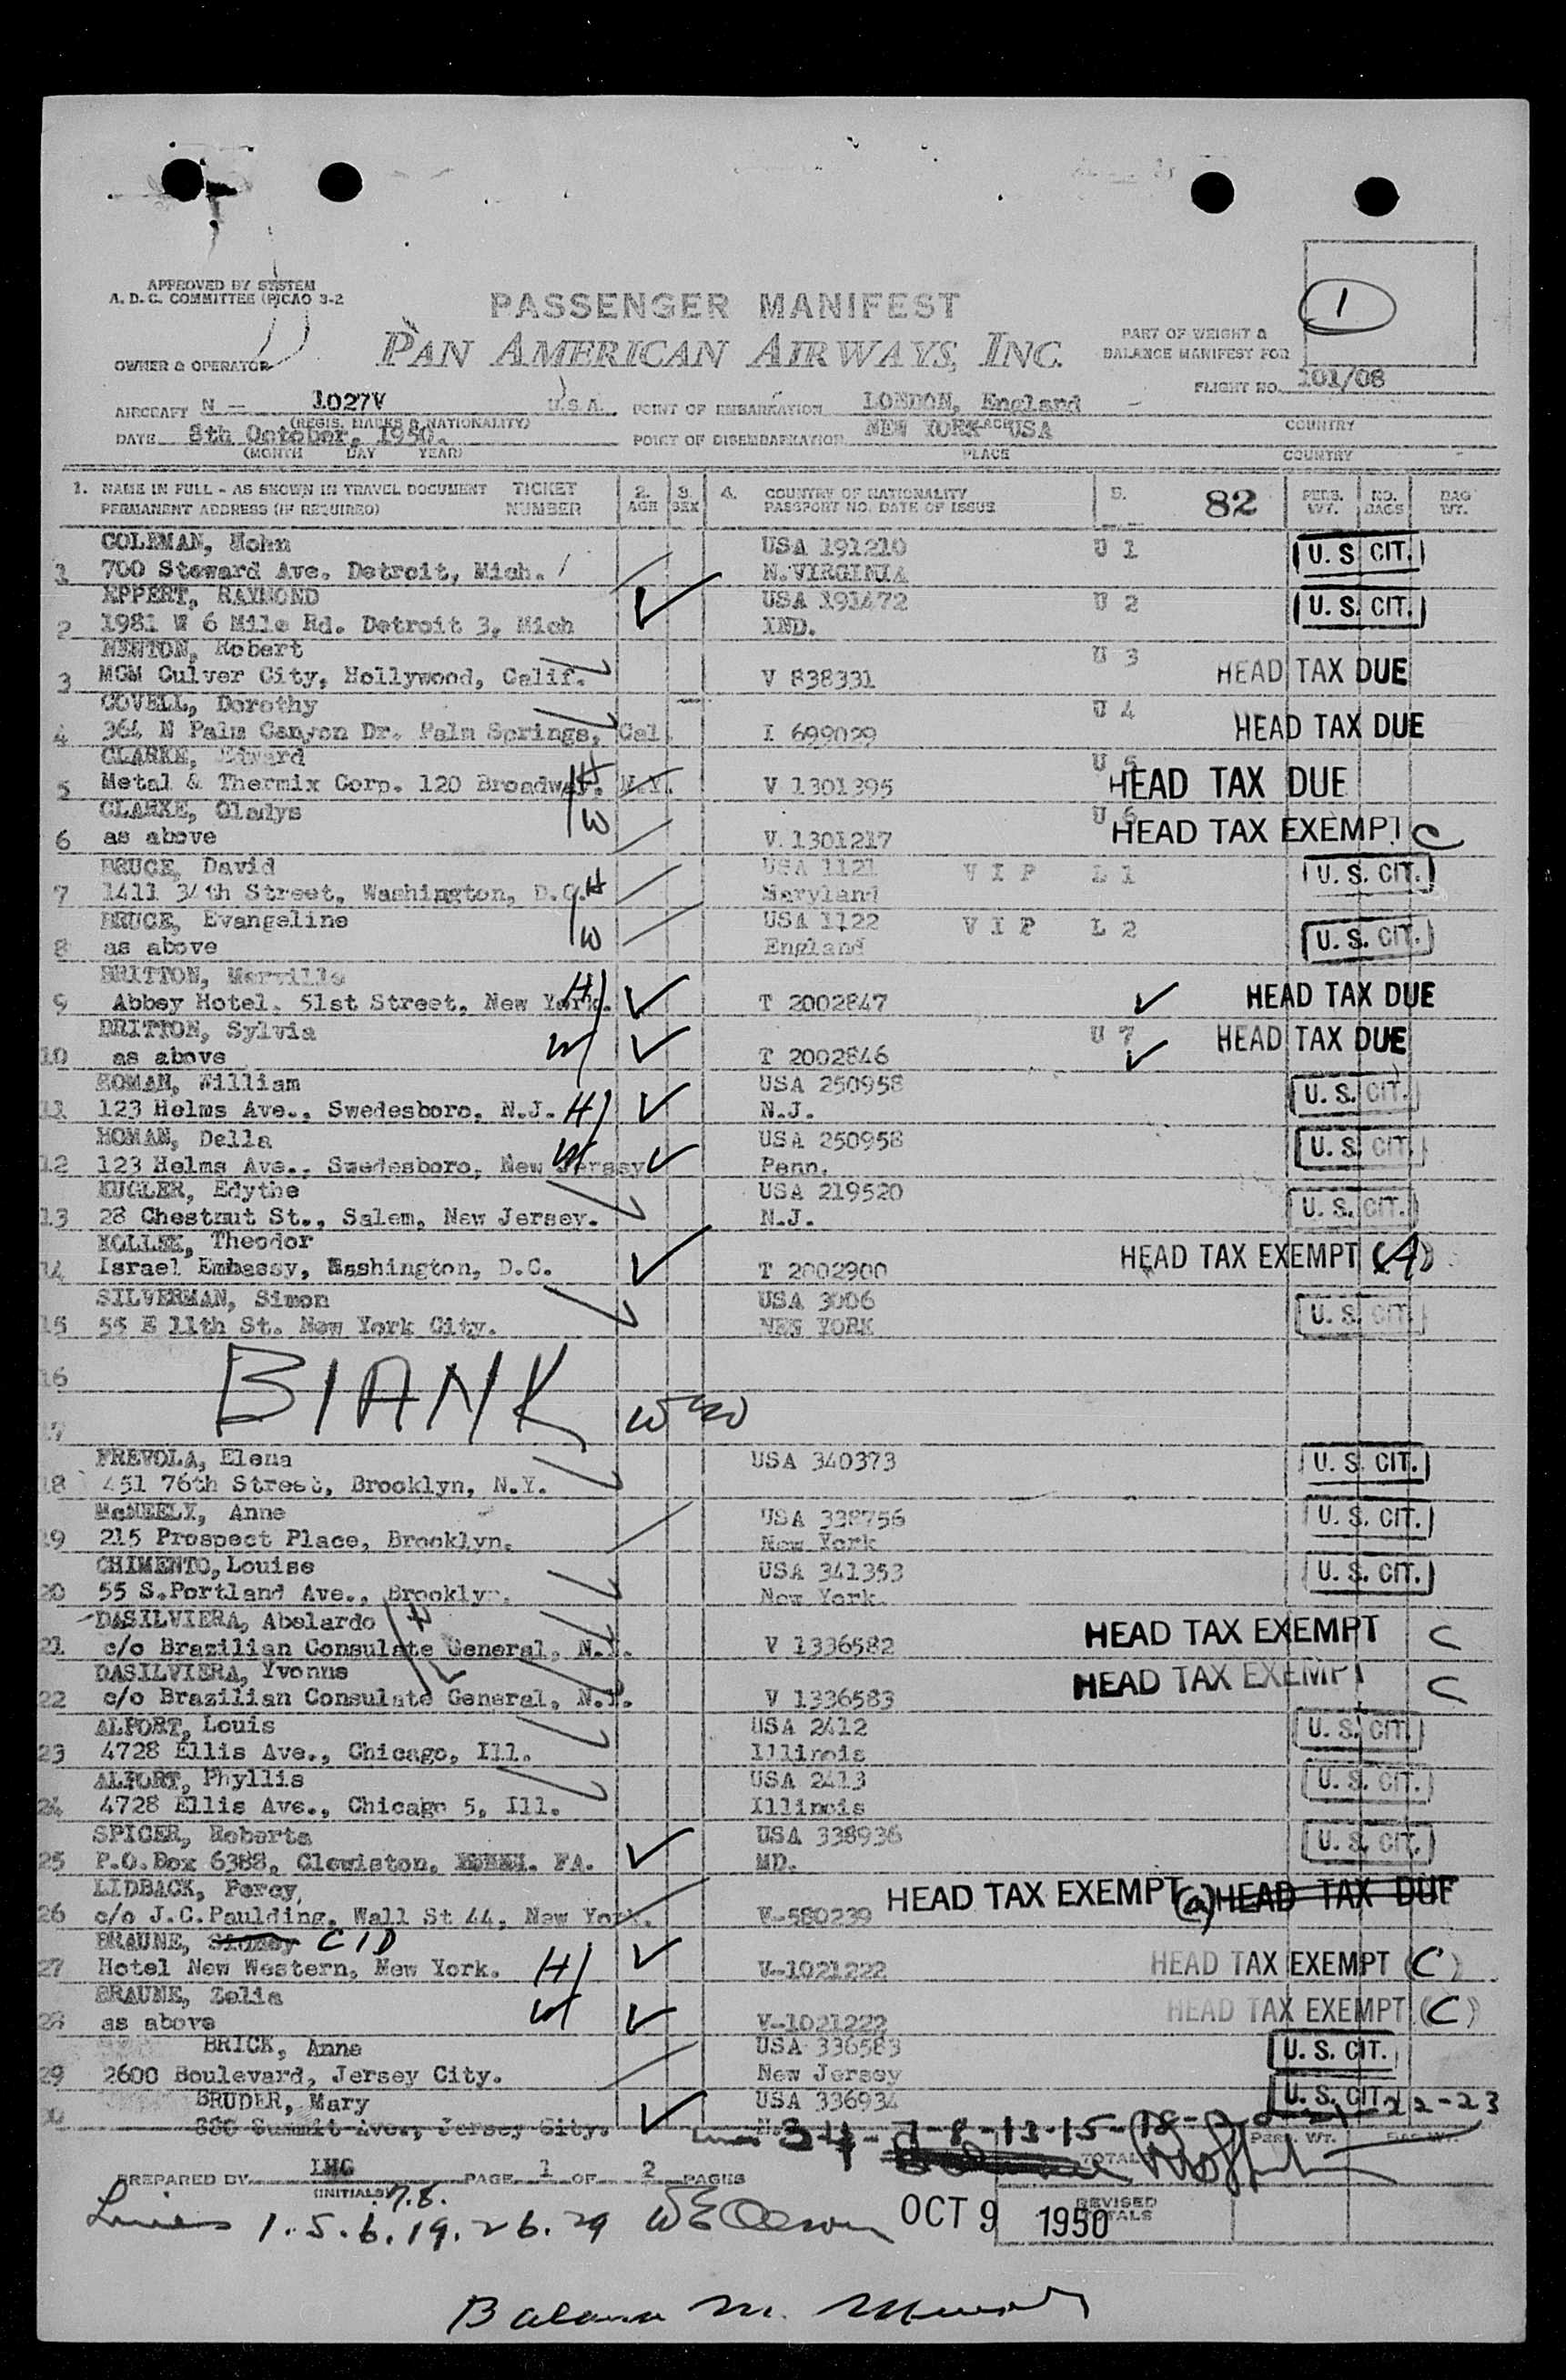 APPROVED BY SYSTEM
A. D. C. COMMITTEE (P)ICAO 3-2
PASSENGER MANIFEST
1
PAN AMERICAN AIRWAYS, INC.
PART OF WEIGHT &
BALANCE MANIFEST FOR
OWNER & OPERATOR
FLIGHT NO. 101/08
AIRCRAFT N — 1027V U.S.A. POINT OF EMBARKATION LONDON, England
(REGIS. MARKS & NATIONALITY) PLACE COUNTRY
DATE 8th October, 1950. POINT OF DISEMBARKATION NEW YORK USA
(MONTH DAY YEAR) PLACE COUNTRY
1. NAME IN FULL - AS SHOWN IN TRAVEL DOCUMENT TICKET 2. 3. 4. COUNTRY OF NATIONALITY 5. 82 PERS. NO. BAG
PERMANENT ADDRESS (IF REQUIRED) NUMBER AGE SEX PASSPORT NO. DATE OF ISSUE WT. BAGS WT.
COLEMAN, John USA 191210 U 1 U. S. CIT.
1 700 Steward Ave. Detroit, Mich. N.VIRGINIA
EPPERT, RAYMOND USA 191472 U 2 U. S. CIT.
2 1981 W 6 Mile Rd. Detroit 3, Mich IND.
Robert U 3
3 MGM Culver City, Hollywood, Calif. V 838331 HEAD TAX DUE
COVELL, Dorothy U 4
4 364 N Palm Canyon Dr. Palm Springs, Cal. I 699029 HEAD TAX DUE
CLARKE, Edward U 5
5 Metal & Thermix Corp. 120 Broadway. N.Y. H V 1301395 HEAD TAX DUE
CLARKE, Gladys U 6
6 as above W V 1301217 HEAD TAX EXEMPT C
BRUCE, David USA 1121 V I P L 1 U. S. CIT.
7 1411 34th Street, Washington, D.C. H Maryland
BRUCE, Evangeline USA 1122 V I P L 2
8 as above W England U. S. CIT.
BRITTON, Merville
9 Abbey Hotel. 51st Street, New York. H T 2002847 HEAD TAX DUE
BRITTON, Sylvia U 7 HEAD TAX DUE
10 as above W T 2002846
HOMAN, William USA 250958 U. S. CIT.
11 123 Helms Ave., Swedesboro, N.J. H N.J.
HOMAN, Della USA 250958 U. S. CIT.
12 123 Helms Ave., Swedesboro, New Jersey W Penn.
KUGLER, Edythe USA 219520 U. S. CIT.
13 28 Chestnut St., Salem, New Jersey. N.J.
KOLLEK, Theodor HEAD TAX EXEMPT (A)
14 Israel Embassy, Washington, D.C. T 2002900
SILVERMAN, Simon USA 3006 U. S. CIT.
15 55 E 11th St. New York City. NEW YORK
16
BLANK
17
PREVOLA, Elena USA 340373 U. S. CIT.
18 451 76th Street, Brooklyn, N.Y.
McNEELY, Anne USA 338756 U. S. CIT.
19 215 Prospect Place, Brooklyn. New York
CHIMENTO, Louise USA 341353 U. S. CIT.
20 55 S.Portland Ave., Brooklyn. New York.
DASILVIERA, Abelardo H HEAD TAX EXEMPT C
21 c/o Brazilian Consulate General, N.Y. V 1336582
DASILVIERA, Yvonne HEAD TAX EXEMPT C
22 c/o Brazilian Consulate General, N.Y. V 1336583
ALPORT, Louis USA 2412 U. S. CIT.
23 4728 Ellis Ave., Chicago, Ill. Illinois
ALPORT, Phyllis USA 2413 U. S. CIT.
24 4728 Ellis Ave., Chicago 5, Ill. Illinois
SPICER, Roberta USA 338936 U. S. CIT.
25 P.O.Box 6388, Clewiston, FA. MD.
LIDBACK, Percy HEAD TAX EXEMPT (a) HEAD TAX DUE
26 c/o J.C.Paulding, Wall St 44, New York. V-580239
BRAUNE, Sidney CID
27 Hotel New Western, New York. H V-1021222 HEAD TAX EXEMPT (C)
BRAUNE, Zelia HEAD TAX EXEMPT (C)
28 as above W V-1021222
BRICK, Anne USA 336583 U. S. CIT.
29 2600 Boulevard, Jersey City. New Jersey
BRUDER, Mary USA 336934 U. S. CIT.
30 880 Summit Ave., Jersey City.
22-23
PERS. WT. BAG WT.
TOTAL
PREPARED BY LMG PAGE 1 OF 2 PAGES
(INITIALS)
7.8.
Lines 1. 5. 6. 19. 26. 29 OCT 9 1950 REVISED TOTALS